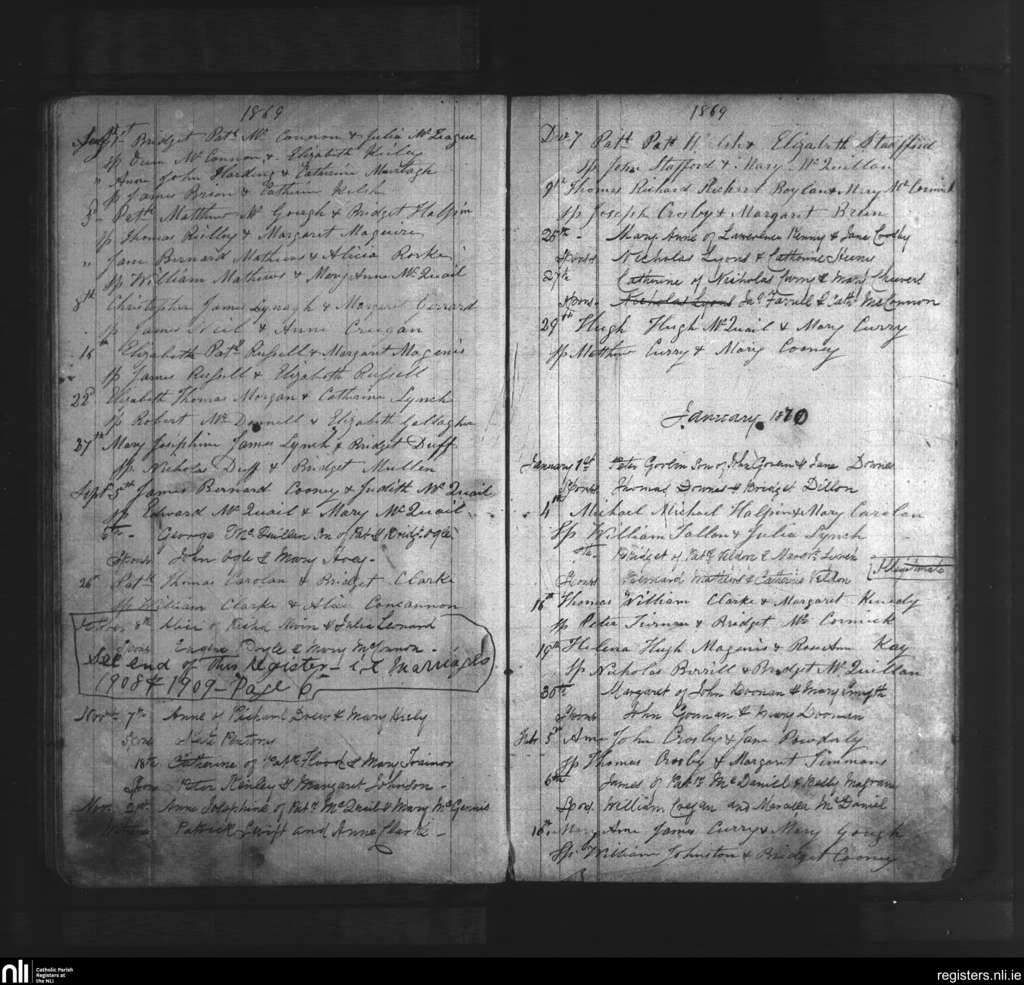 1869
1st Bridget Patk Mc Connon & Julia McTeague
sp Mc Connon & Elizabeth
" Anne John Harding & Catherine Murtagh
sp James Brien & Catherine Kelsh
5th Patk Matthew Mc Gough & Bridget Halpin
sp Thomas Reilley & Margaret Maguire
" Jane Bernard Mathews & Alicia Rorke
sp William Mathews & Mary Anne McQuail
8th Christopher James Lynagh & Margaret Gerrard
sp James & Anne Creegan
16 Elizabeth Patk Russell & Margaret Magenis
sp James Russell & Elizabeth Russell
22 Elizabeth Thomas Morgan & Catherine Lynch
sp Robert Mc Donnell & Elizabeth Gallagher
27th Mary Josephine James Lynch & Bridget Duff
sp Nicholas Duff & Bridget Mullen
Sept 5th James Bernard Cooney & Judith McQuail
sp Edward McQuail & Mary McQuail
6th George McQuillan son of Patk & Bridgt Ogle
Spons John Ogle & Mary
26 Patk Thomas Carolan & Bridget Clarke
sp William Clarke & Alice Concannon
8th of & Julia Leonard
Spons Eugene Doyle & Mary McConnon
See end of this register - i.e. marriages
1908 & 1909 - Page 6
Novr 7th Anne of Richard Drew & Mary
Spons
18th Catherine of Patk Flood & Mary Trainor
Spons Peter & Margaret Johnson
Nov. 21st Anne Josephine of Patk McQuail & Mary McGennis
Patrick Swift and Anne Clarke
1869
Decr 7 Patk Patk & Elizabeth Stafford
sp John Stafford & Mary McQuillan
9th Thomas Richard & Mary McCormick
sp Joseph Crosby & Margaret Brien
25th Mary Anne of Lawrence Penny & Jane Crosby
Spons Nicholas Lyons & Catherine
27th Catherine of Nicholas & Mary
Spons Nicholas Lyons Jas Farrell & Cath McConnon
29th Hugh Hugh McQuail & Mary Curry
sp Matthew Curry & Mary Cooney
January 1870
January 1st Peter son of John & Jane Downes
Spons Thomas Downes & Bridget Dillon
4th Michael Michael Halpin & Mary Carolan
Sp William Fallon & Julia Lynch
Bridget of Patk Veldon &
Illigitimate
Spons Bernard Mathews & Catherine Veldon
16th Thomas William Clarke & Margaret Kenedy
sp Peter & Bridget McCormick
19th Helena Hugh Magenis & Rose Ann Kay
sp Nicholas Berrill & Bridget McQuillan
30th Margaret of John Doonan & Mary Smyth
Spons John & Mary Doonan
Feb. 5th Anne John Crosby & Jane Powderly
sp Thomas Crosby & Margaret Simmons
6th James of Patk McDaniel &
Spons William and McDaniel
16th Mary Anne James Curry & Mary Gough
Sp William Johnston & Bridget Cooney
nli
Catholic Parish
Registers at
the NLI
registers.nli.ie